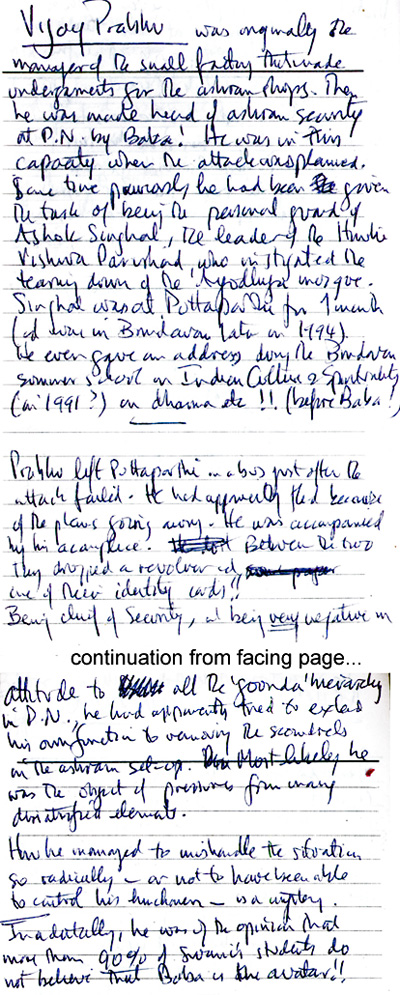 Vijay Prabhu was originally the
manager of the small factory that made
undergarments for the ashram shops. Then
he was made head of ashram security
at P.N. by Baba! He was in this
capacity when the attack was planned.
Some time previously he had been given
the task of being the personal guard of
Ashok Singhal, the leader of the Hindu
Vishwa Parishad, who instigated the
tearing down of the Ayodhya mosque.
Singhal was at Puttaparthi for 1 month
(& was in Brindavan late in 1994)
He even gave an address during the Brindavan
summer school on Indian Culture & Spirituality
(in 1991?) on dharma etc!! (before Baba!)
Prabhu left Puttaparthi in a bus just after the
attack failed. He had apparently fled because
of the plans going wrong. He was accompanied
by his accomplice. Between the two
they dropped a revolver and
one of their identity cards!!
Being chief of Security, and being very negative in
continuation from facing page...
attitude to all the 'goonda' hierarchy
in P.N., he had apparently tried to extend
his own function to removing the scoundrels
in the ashram set-up. Most likely he
was the object of pressures from many
dissatisfied elements.
How he managed to mishandle the situation
so radically - or not to have been able
to control his henchmen - is a mystery.
Incidentally, he was of the opinion that
more than 90% of Swami's students do
not believe that Baba is the avatar!!